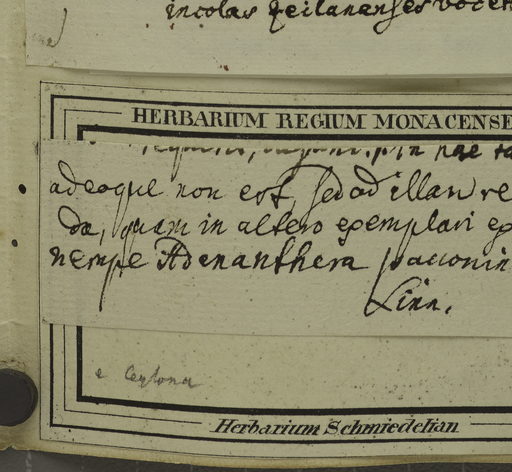 incolas Zeilanenses vocen
HERBARIUM REGIUM MONACENSE
adeoque non est, sed ad illam re
da, quam in altero exemplari ex
nempe Adenanthera pavonin
Linn.
e Ceylona
Herbarium Schmiedelian